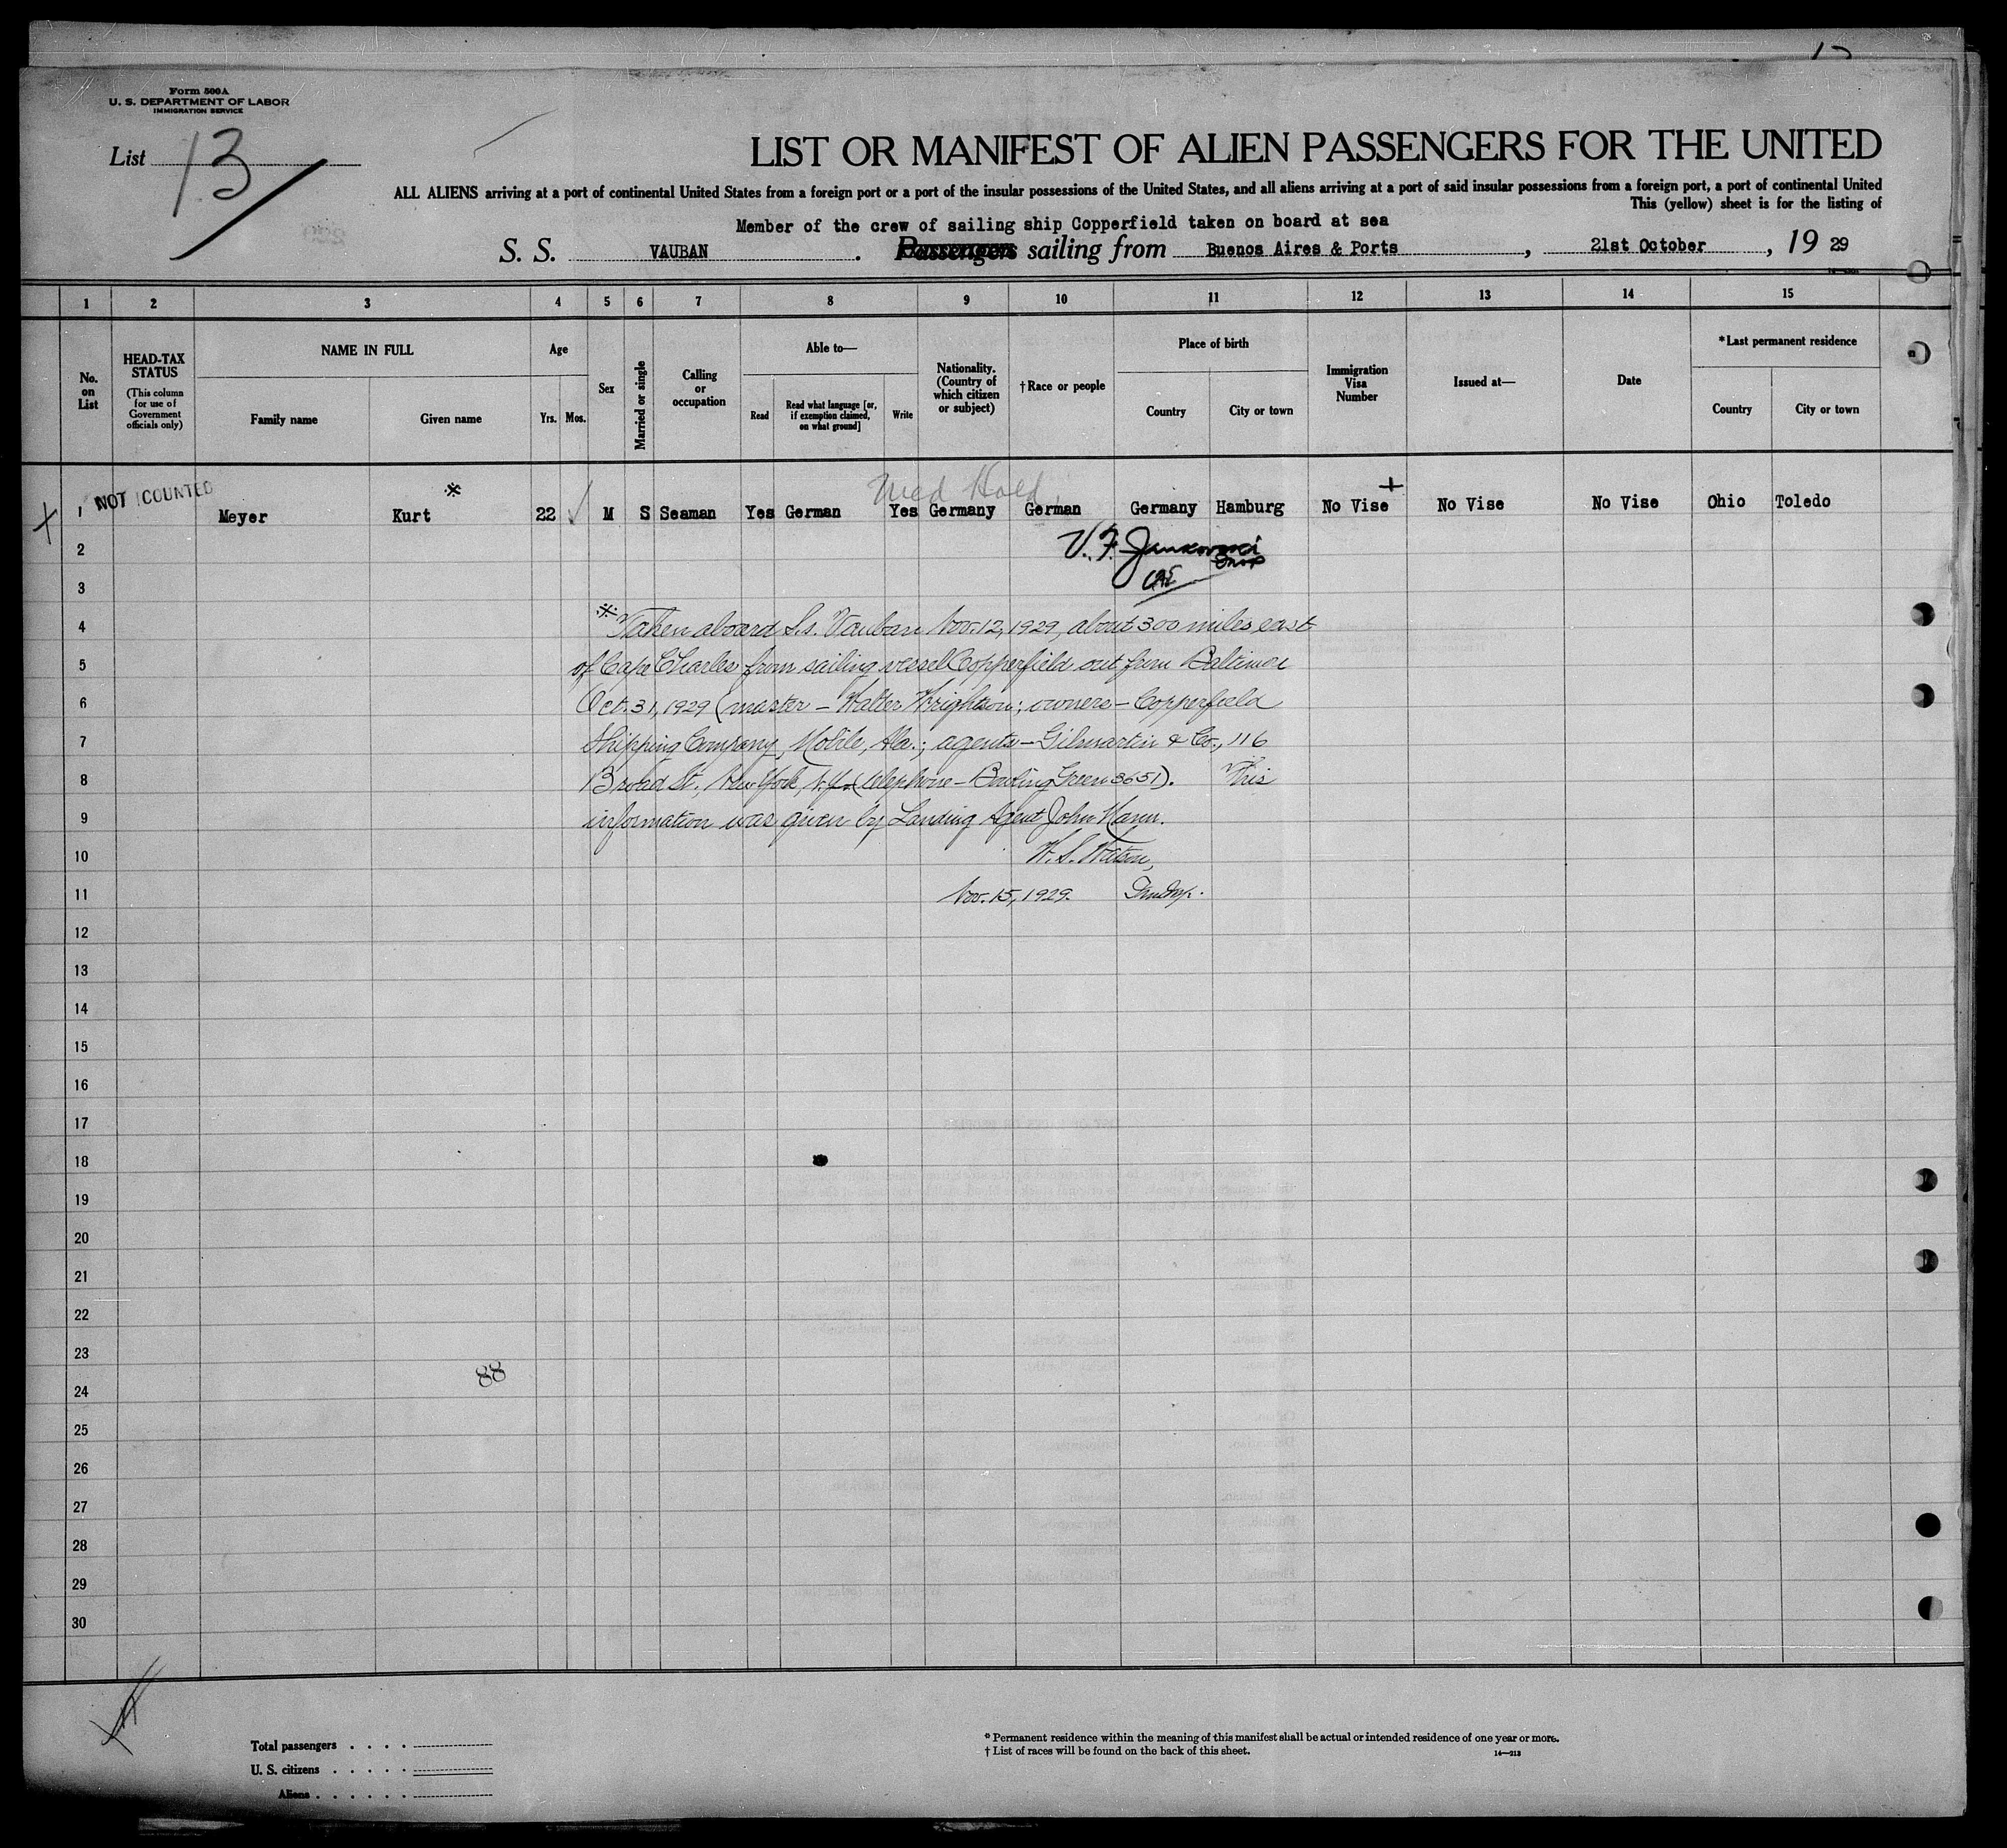 Form 500A
U. S. DEPARTMENT OF LABOR
IMMIGRATION SERVICE
List 13
LIST OR MANIFEST OF ALIEN PASSENGERS FOR THE UNITED
ALL ALIENS arriving at a port of continental United States from a foreign port or a port of the insular possessions of the United States, and all aliens arriving at a port of said insular possessions from a foreign port, a port of continental United
This (yellow) sheet is for the listing of
Member of the crew of sailing ship Copperfield taken on board at sea
S. S. VAUBAN . Passengers sailing from Buenos Aires & Ports , 21st October , 19 29
1 2 3 4 5 6 7 8 9 10 11 12 13 14 15
No. on List
HEAD-TAX STATUS
(This column for use of Government officials only)
NAME IN FULL
Family name Given name
Age
Yrs. Mos.
Sex
Married or single
Calling or occupation
Able to—
Read
Read what language [or, if exemption claimed, on what ground]
Write
Nationality. (Country of which citizen or subject)
†Race or people
Place of birth
Country City or town
Immigration Visa Number
Issued at—
Date
*Last permanent residence
Country City or town
Med Hold
1 NOT COUNTED Meyer Kurt 22 M S Seaman Yes German Yes Germany German Germany Hamburg No Vise No Vise No Vise Ohio Toledo
2 V. F. Jankowski
3
4 Taken aboard S.s. Vauban Nov. 12, 1929, about 300 miles east
5 of Cape Charles from sailing vessel Copperfield out from Baltimore
6 Oct. 31, 1929 (master – Walter Wrightson; owners – Copperfield
7 Shipping Company, Mobile, Ala.; agents – Gilmartin & Co., 116
8 Broad St., New York, N.Y. (telephone – Bowling Green 3651). This
9 information was given by Landing Agent John Mann.
10 W. S. Watson,
11 Nov. 15, 1929.
12
13
14
15
16
17
18
19
20
21
22
23
88
24
25
26
27
28
29
30
Total passengers . . . .
U. S. citizens . . . . .
Aliens . . . . . .
* Permanent residence within the meaning of this manifest shall be actual or intended residence of one year or more.
† List of races will be found on the back of this sheet.
14—213